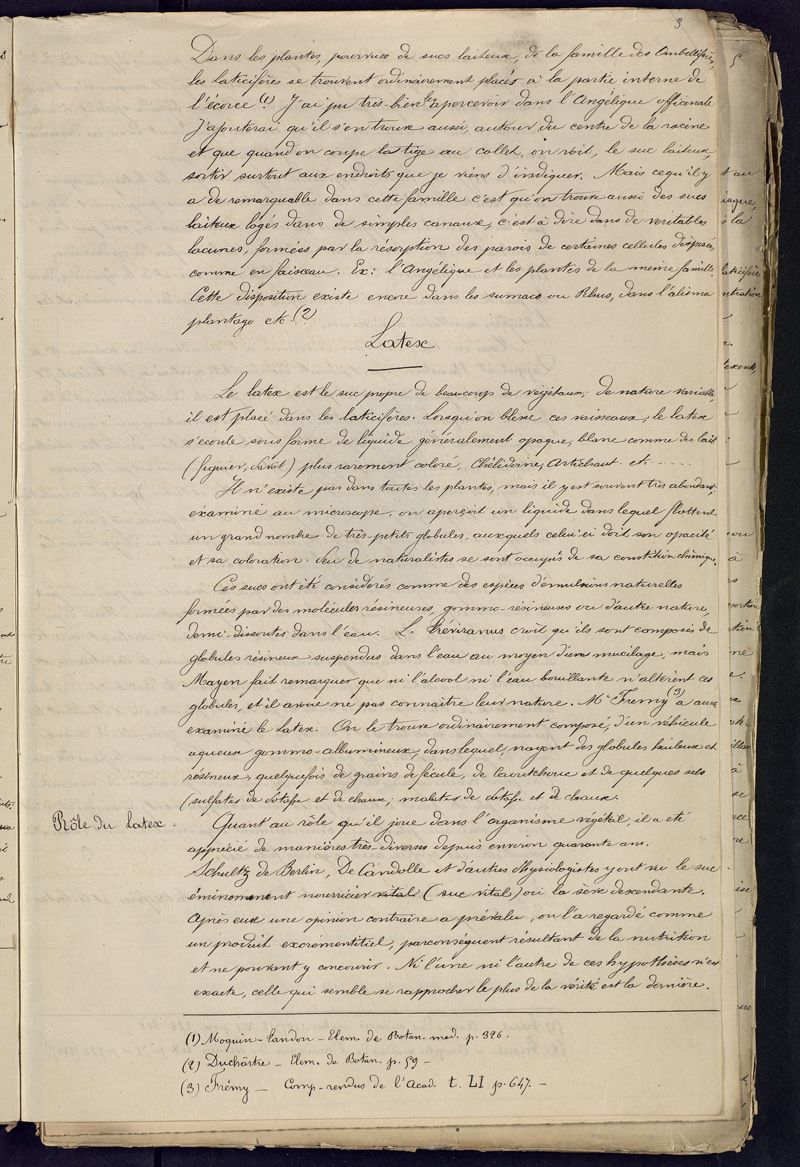 3
Dans les plantes, pourvues de sucs laiteux, de la famille des Ombellifères
les laticifères se trouvent ordinairement placés à la partie interne de
l'écorce (1) J'ai pu très-bien les apercevoir dans l'Angélique officinale
J'ajouterai qu'il s'en trouve aussi, autour du centre de la racine
et que quand on coupe la tige au collet, on voit, le suc laiteux,
sortir surtout aux endroits que je viens d'indiquer. Mais ce qu'il y
a de remarquable dans cette famille c'est qu'on trouve aussi des sucs
laiteux logés dans de simples canaux, c'est à dire dans de veritables
lacunes, formées par la résorption des parois de certaines cellules disposées
comme en faisceau. Ex: l'Angélique et les plantes de la même famille
Cette disposition existe encore dans les sumacs ou Rhus, dans l'alisma
plantago etc. (2)
Latex
Le latex est le suc propre de beaucoup de végétaux; de nature variable
il est placé dans les laticifères. Lorsqu'on blesse ces vaisseaux, le latex
s'écoule sous forme de liquide généralement opaque, blanc comme du lait
(figuier, pavot) plus rarement coloré, Chélidoine, Artichaut. et. ....
Il n'existe pas dans toutes les plantes, mais il y est souvent très abondant,
examiné au microscope, on aperçoit un liquide dans lequel flottent
un grand nombre de très-petits globules, auxquels celui-ci doit son opacité
et sa coloration. Peu de naturalistes se sont occupés de sa constitution chimique.
Ces sucs ont été considérés comme des espèces d'émulsions naturelles
formées par des molécules résineuses, gommo-résineuses ou d'autre nature,
demi-dissoutes dans l'eau. L. Tréviranus croit qu'ils sont composés de
globules résineux suspendus dans l'eau au moyen d'un mucilage, mais
Mayen fait remarquer que ni l'alcool ni l'eau bouillante n'altèrent ces
globules, et il avoue ne pas connaître leur nature. Mr Frémy (3) a aussi
examiné le Latex. On le trouve ordinairement composé, d'un véhicule
aqueux gommo-albumineux, dans lequel, nagent des globules huileux et
résineux, quelquefois de grains de fécule, de caoutchouc et de quelques sels
(sulfates de potasse et de chaux; malates de potasse et de chaux.
Rôle du Latex.
Quant au rôle qu'il joue dans l'organisme végétal, il a été
apprécié de manières très-diverses depuis environ quarante ans.
Schultz de Berlin, De Candolle et d'autres Physiologistes y ont vu le suc
éminemment nourricier vital (suc vital) ou la sève descendante.
Après eux une opinion contraire a prévalu, on l'a regardé comme
un produit excrémentitiel, parconséquent résultant de la nutrition
et ne pouvant y concourir. Ni l'une ni l'autre de ces hypothèses n'est
exacte, celle qui semble se rapprocher le plus de la vérité est la dernière.
(1) Moquin-Tandon - Elem. de Botan. med. p. 326.
(2) Duchârtre - Elem. de Botan. p. 59 -
(3) Frémy - Comp-rendus de l'Acad. t. LI p. 647. -